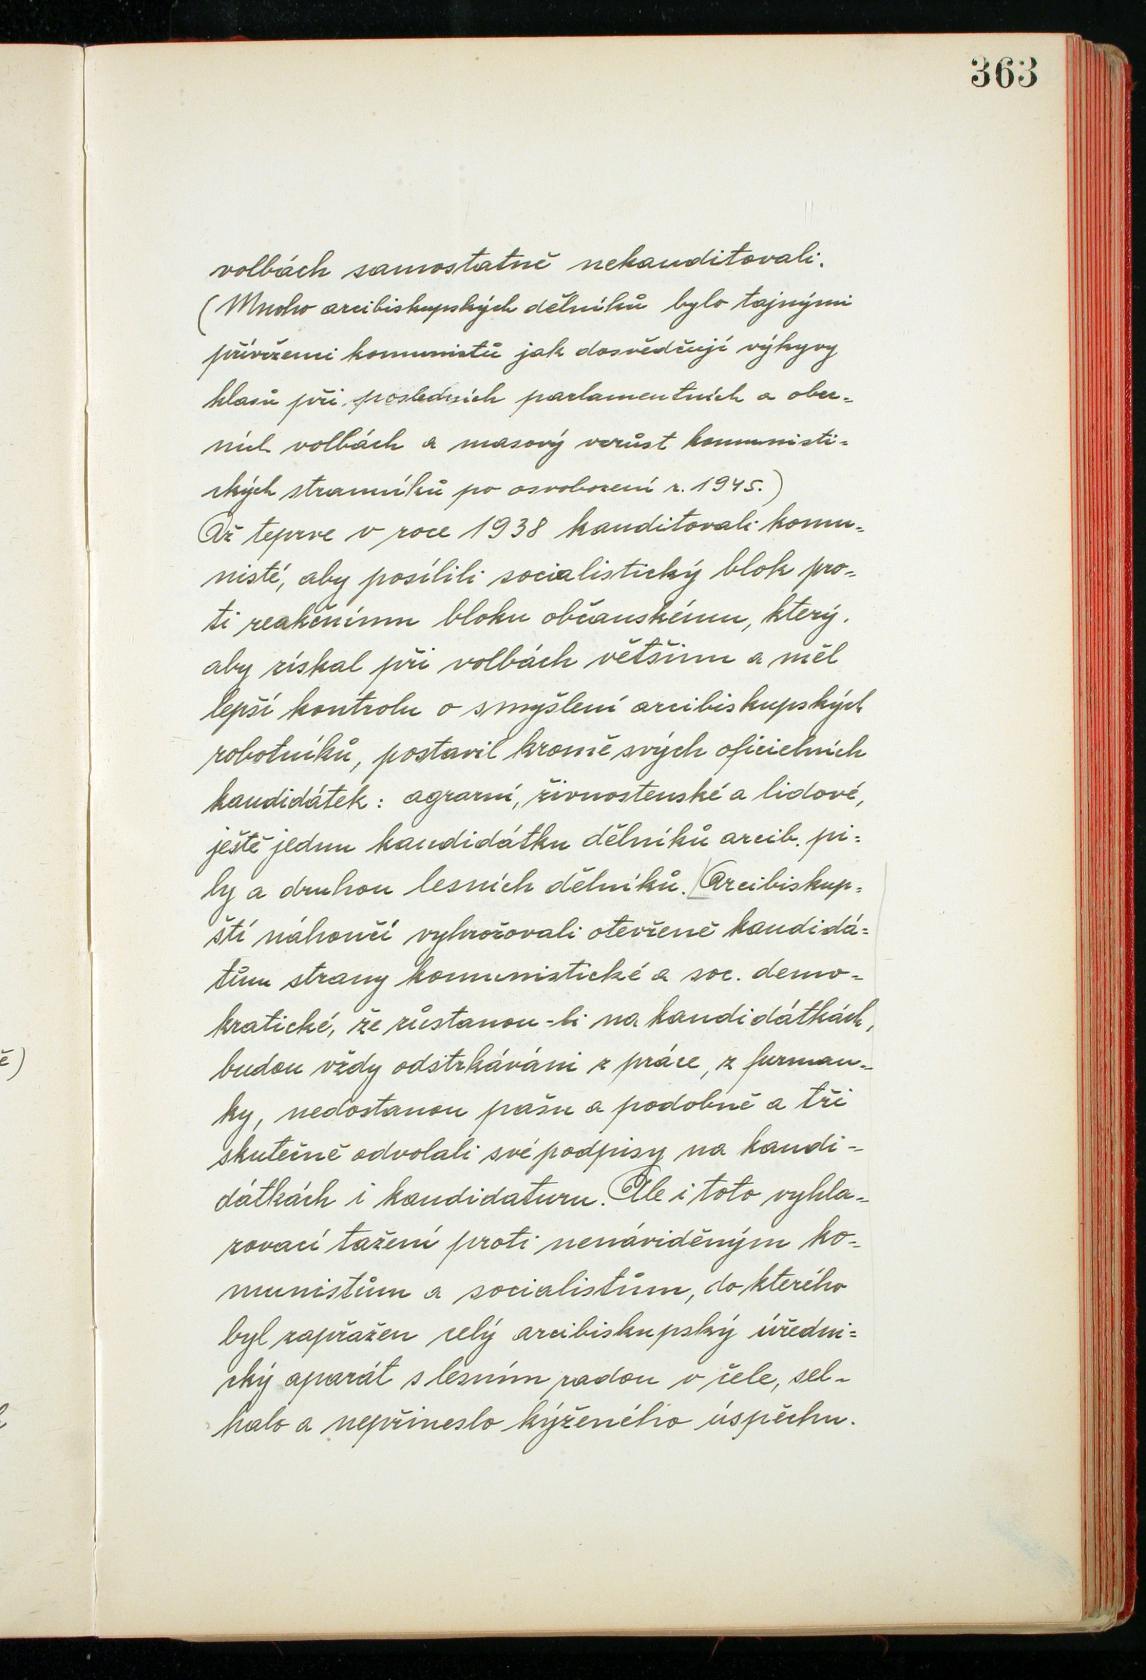 363
volbách samostatně nekanditovali.
(Mnoho arcibiskupských dělníků bylo tajnými
přívrženci komunistů jak dosvědčují výkyvy
hlasů při posledních parlamentních a obec=
ních volbách a masový vzrůst komunisti=
ckých straníků po osvobození r. 1945.)
Až teprve v roce 1938 kanditovali komu=
nisté, aby posílili socialistický blok pro=
ti reakčnímu bloku občanskému, který,
aby získal při volbách většinu a měl
lepší kontrolu o smyšlení arcibiskupských
robotníků, postavil kromě svých oficielních
kandidátek: agrarní, živnostenské a lidové,
ještě jednu kandidátku dělníků arcib. pi=
ly a druhou lesních dělníků. Arcibiskup=
ští náhončí vyhrožovali otevřeně kandidá=
tům strany komunistické a soc. demo=
kratické, že zůstanou-li na kandidátkách,
budou vždy odstrkáváni z práce, z furman=
ky, nedostanou pašu a podobně a tři
skutečně odvolali své podpisy na kandi=
dátkách i kandidaturu. Ale i toto vyhla=
zovací tažení proti nenáviděným ko=
munistům a socialistům, do kterého
byl zapřažen celý arcibiskupský úředni=
cký aparát s lesním radou v čele, sel=
halo a nepřineslo kýženého úspěchu.
ě)